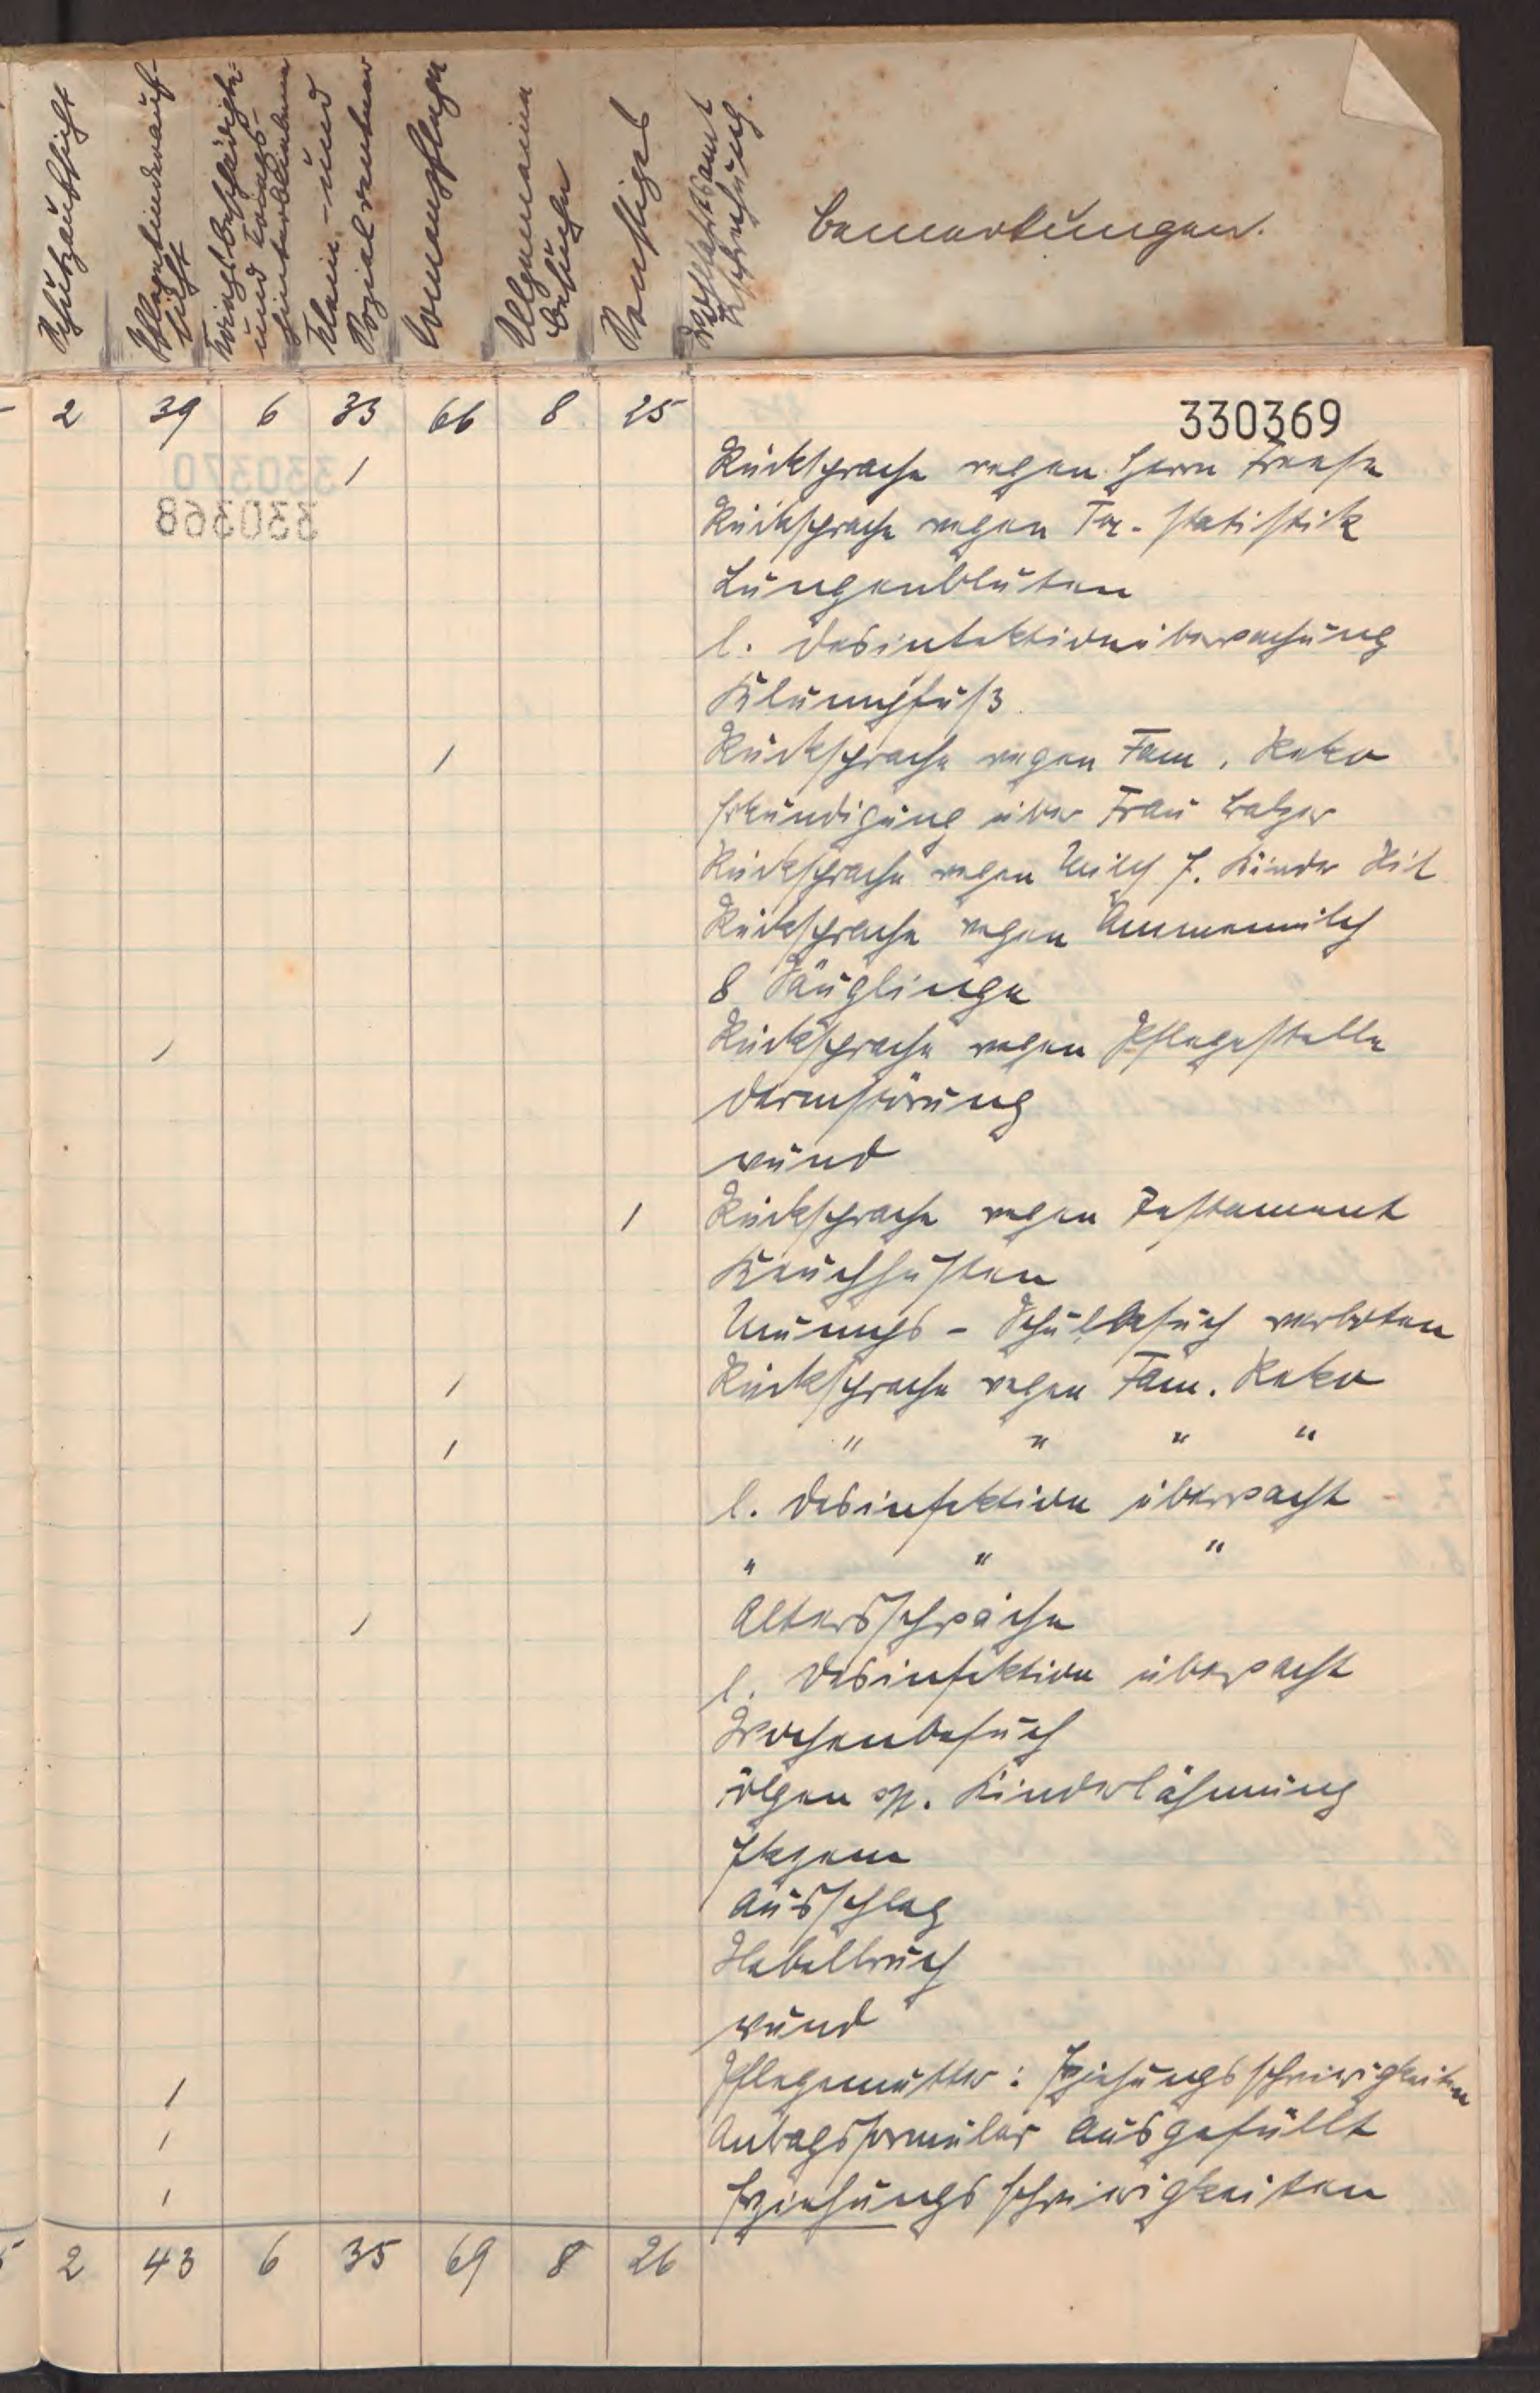 Schutzaufsicht
Pflegekinderauf-
sicht
Kriegsbeschädigte-
und Kriegs-
hinterbliebene
Klein- und
Sozialrentner
Armenpflege
Allgemeine
Besuche
Sonstiges
Wohlfahrtsamt
Bemerkungen.
2 39 6 33 66 8 25
330369
1 Rücksprache wegen Herrn Freese
Rücksprache wegen Tbc-Statistik
Lungenbluten
l. Desinfektionsüberwachung
Klumpfuß
1 Rücksprache wegen Fam. Reko
Erkundigung über Frau Balzer
Rücksprache wegen Milch f. Kinder
Rücksprache wegen Ammenmilch
8 Säuglinge
1 Rücksprache wegen Pflegestelle
Darmstörung
wund
1 Rücksprache wegen Testament
Keuchhusten
Mumps - Schulbesuch verboten
1 Rücksprache wegen Fam. Reko
1 " " " "
l. Desinfektion überwacht
" " "
1 Altersschwäche
l. Desinfektion überwacht
Wochenbesuch
sp. Kinderlähmung
Ekzem
Ausschlag
Nabelbruch
wund
1 Pflegemutter: Erziehungsschwierigkeiten
1 Antragsformular ausgefüllt
1 Erziehungsschwierigkeiten
2 43 6 35 69 8 26